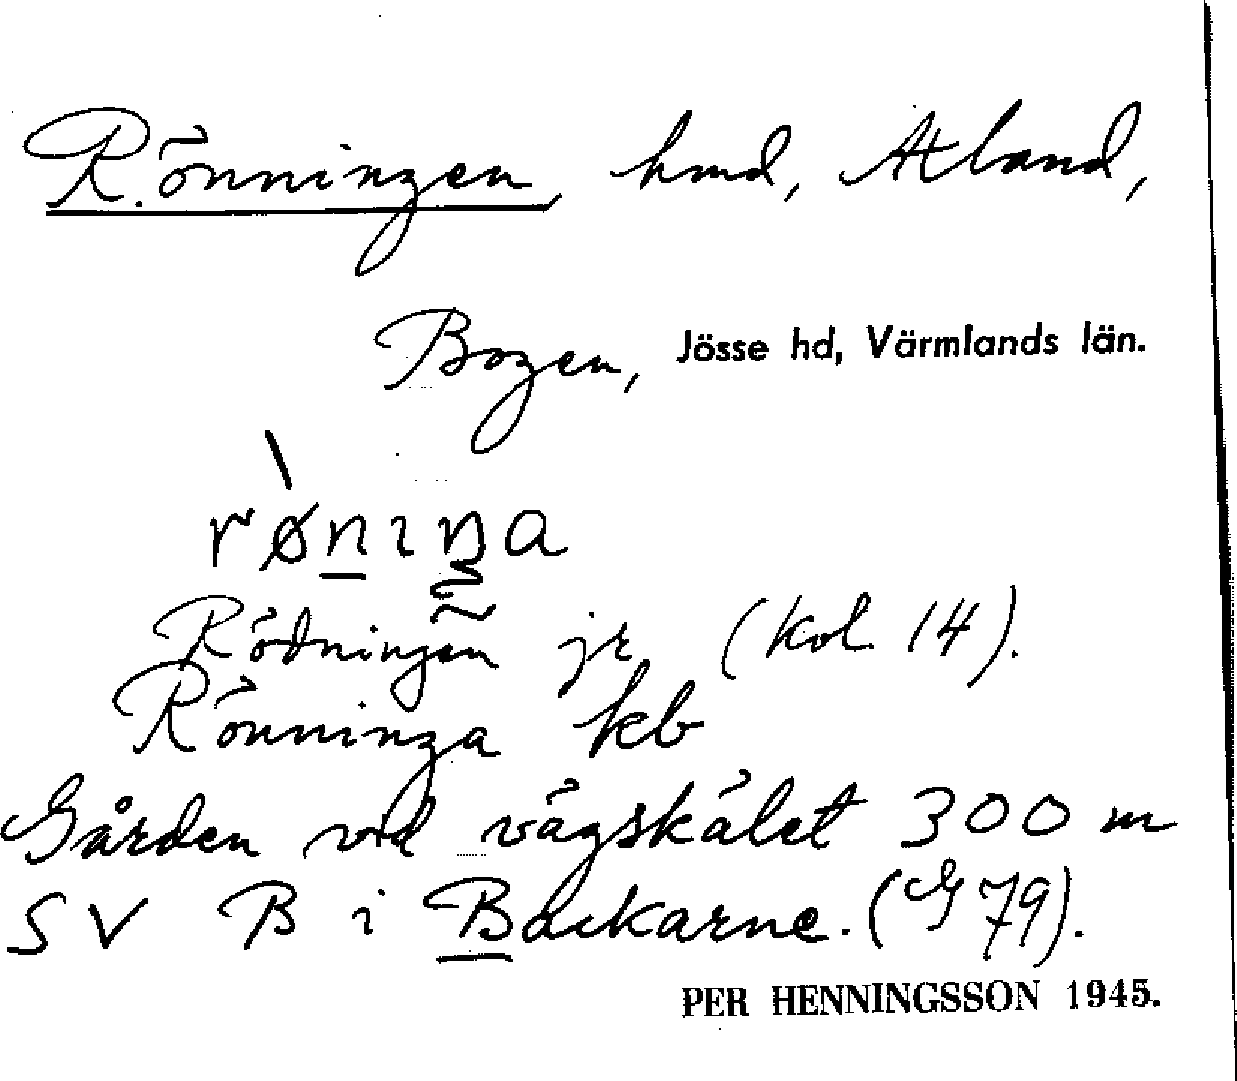 Rönningen, hmd, Ålland,
Bogen, Jösse hd, Värmlands län.
rø̀nıŋa
Rödningen jr (kol 14).
Rönninga kb
Gården vid vägskälet 300 m
SV B i Backarne. (G 79).
PER HENNINGSSON 1945.